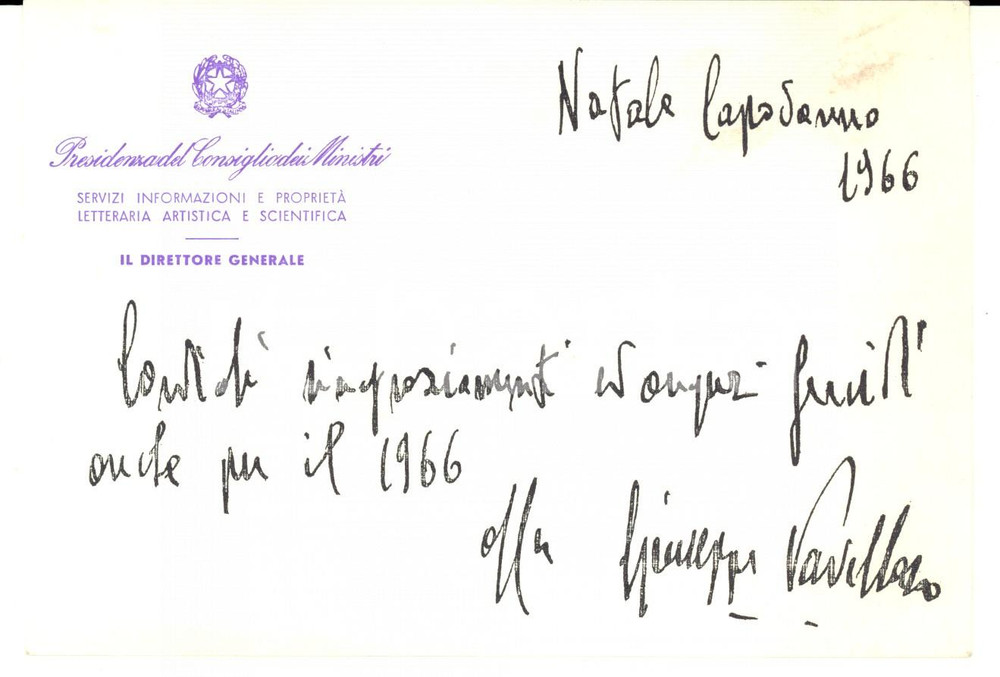 Presidenza del Consiglio dei Ministri
SERVIZI INFORMAZIONI E PROPRIETÀ
LETTERARIA ARTISTICA E SCIENTIFICA
IL DIRETTORE GENERALE
Natale Capodanno
1966
Cordiali ringraziamenti ed auguri
anche per il 1966
Giuseppe Padellaro